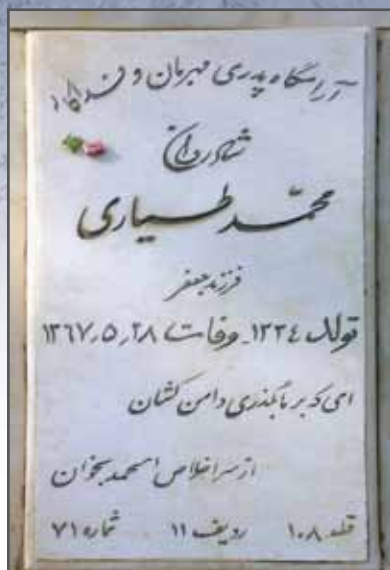 آرامگاه پدری مهربان و فداکار
شادروان
محمد طیاری
فرزند جعفر
تولد ۱۳۳٤ ـ وفات ۱۳٦۷٫۵٫۲۸
ای که بر ما بگذری دامن کشان
از سر اخلاص الحمد بخوان
قطعه ۱۰۸ ردیف ۱۱ شماره ۷۱